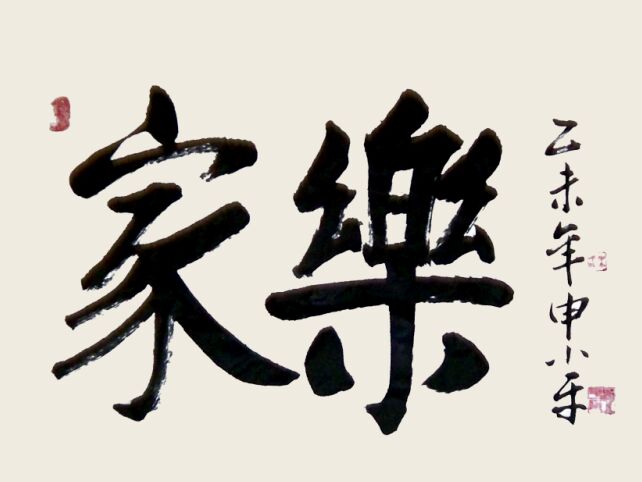 家樂
乙未年申小平